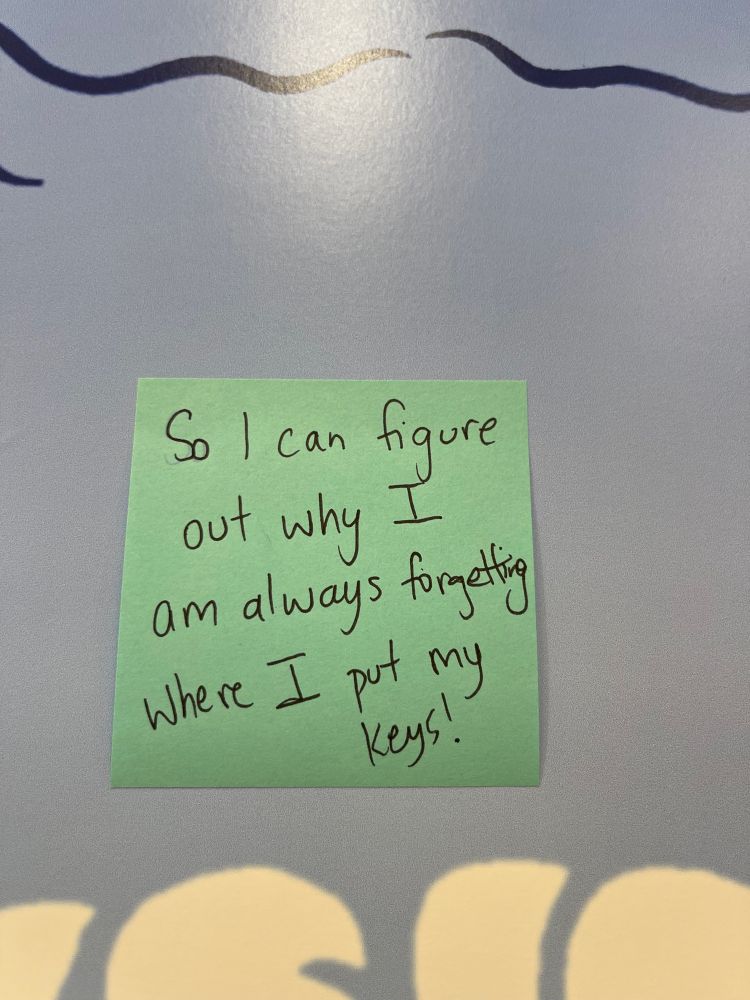 So I can figure
out why I
am always forgetting
where I put my
keys!